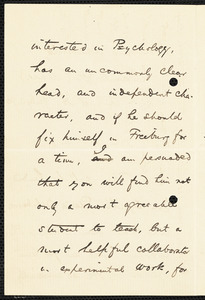 interested in Psychology,
has an uncommonly clear
head, and independent cha-
racter, and if he should
fix himself in Freiburg for
a time, I am persuaded
that you will find him not
only a most agreeable
student to teach, but a
most helpful collaborator
in experimental work, for